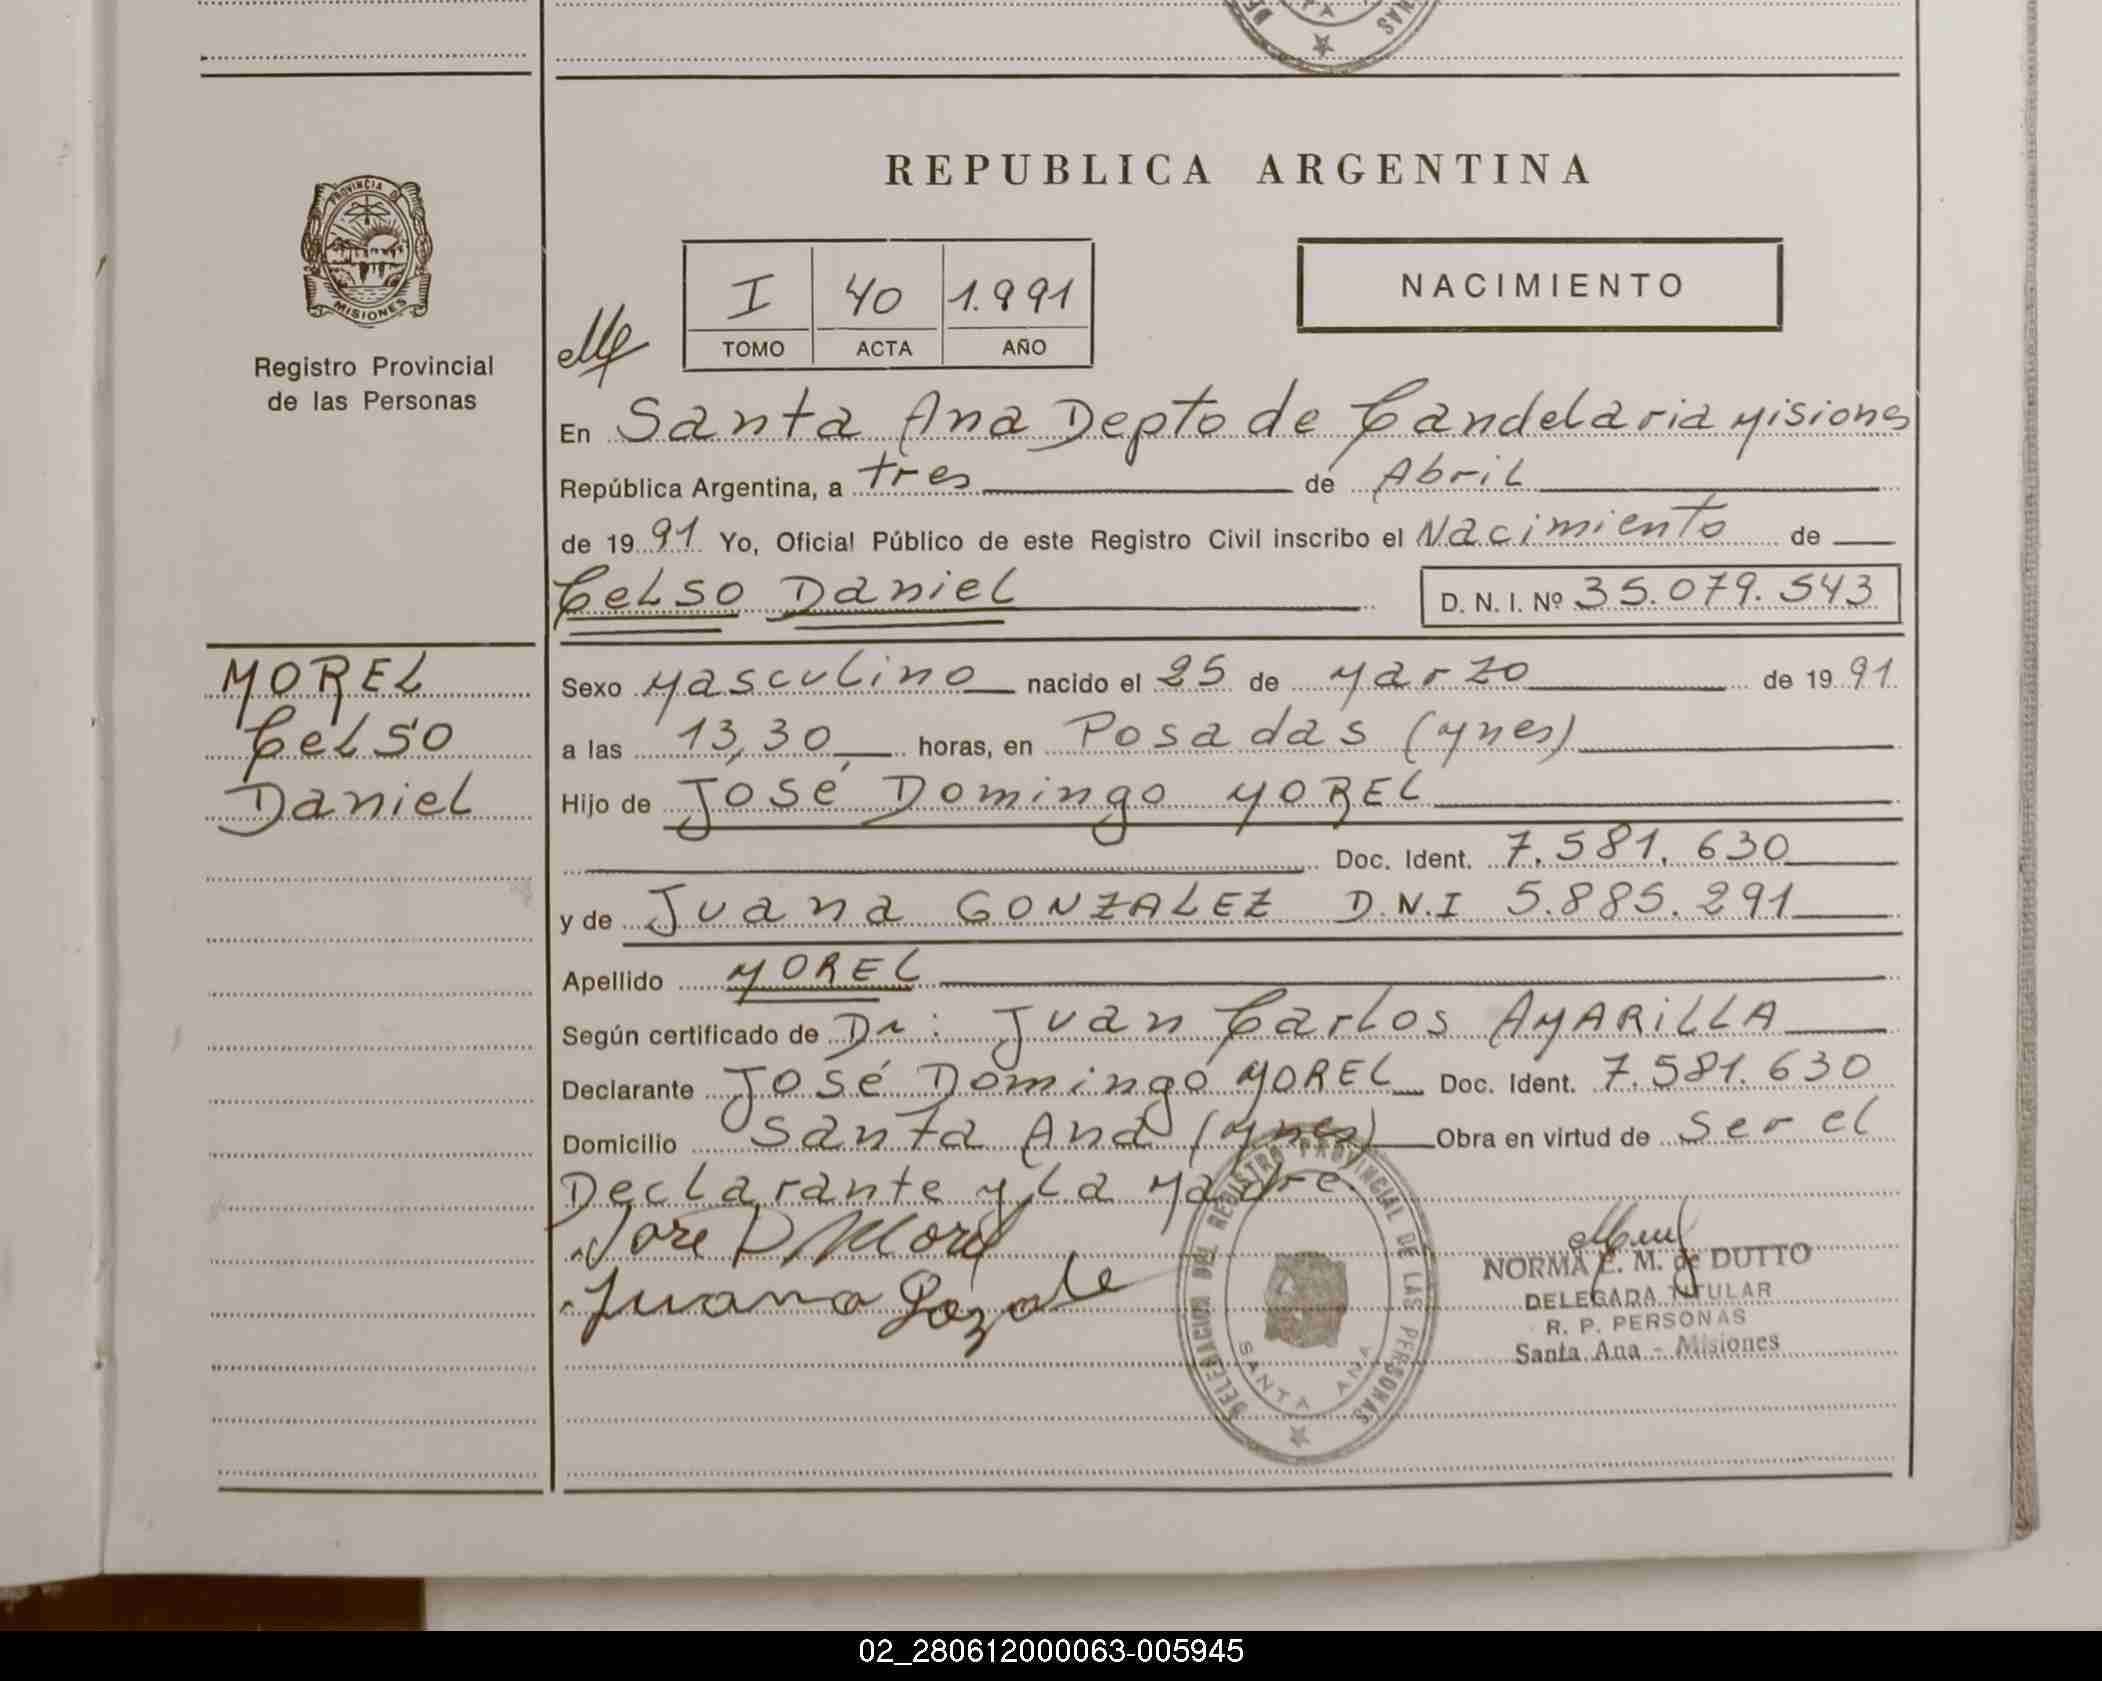 REPUBLICA ARGENTINA
PROVINCIA DE
MISIONES
Registro Provincial
de las Personas
I 40 1.991
TOMO ACTA AÑO
NACIMIENTO
En Santa Ana Depto de Candelaria Misiones
República Argentina, a tres de Abril
de 1991 Yo, Oficial Público de este Registro Civil inscribo el Nacimiento de
Celso Daniel D. N. I. Nº 35.079.543
MOREL
Celso
Daniel
Sexo Masculino nacido el 25 de Marzo de 1991
a las 13,30 horas, en Posadas (Mnes)
Hijo de José Domingo MOREL
Doc. Ident. 7.581.630
y de Juana GONZALEZ D.N.I 5.885.291
Apellido MOREL
Según certificado de Dr: Juan Carlos AMARiLLA
Declarante José Domingo MOREL Doc. Ident. 7.581.630
Domicilio Santa Ana (Mnes) Obra en virtud de Ser el
Declarante y La Madre.
Jose D Morel
Juana
DELEGACION DEL REGISTRO PROVINCIAL DE LAS PERSONAS
SANTA ANA
NORMA E. M. de DUTTO
DELEGADA TITULAR
R. P. PERSONAS
Santa Ana - Misiones
02_280612000063-005945